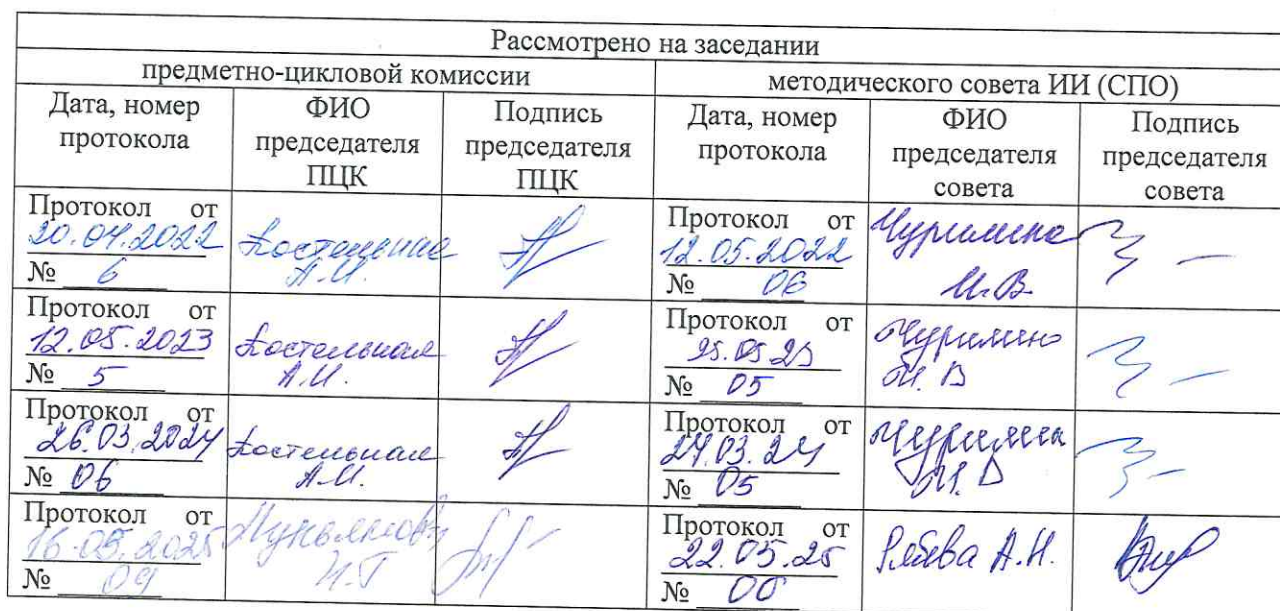 Рассмотрено на заседании
предметно-цикловой комиссии
методического совета ИИ (СПО)
Дата, номер
протокола
ФИО
председателя
ПЦК
Подпись
председателя
ПЦК
Дата, номер
протокола
ФИО
председателя
совета
Подпись
председателя
совета
Протокол от
20.04.2022
№ 6
Костельная
А.И.
Протокол от
12.05.2022
№ 06
Чурилина
И.В.
Протокол от
12.05.2023
№ 5
Костельная
А.И.
Протокол от
25.05.23
№ 05
Чурилина
И.В
Протокол от
26.03.2024
№ 06
Костельная
А.И.
Протокол от
03.24
№ 05
Чурилина
И.В
Протокол от
16.05.2025
№ 09
Н.Г
Протокол от
22.05.25
№
А.Н.